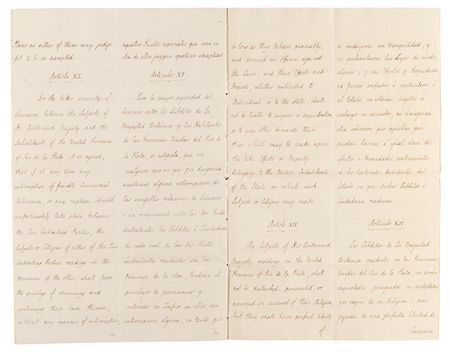 Places as either of them may judge
fit to be so excepted.
Article XI.
For the better security of
Commerce between the Subjects of
His Britannick Majesty and the
Inhabitants of the United Provinces
of Rio de la Plata, it is agreed,
that if at any time any
interruption of friendly Commercial
Intercourse, or any rupture should
unfortunately take place between
the Two Contracting Parties, the
Subjects or Citizens of either of the Two
Contracting Parties residing in the
Dominions of the other, shall have
the privilege of remaining and
continuing their Trade therein,
without any manner of interruption,
aquellos Puntos especiales que
Articulo XI
Para la mayor seguridad del
Comercio entre los Súbditos de Su
Magestad Británica y los Habitantes
de las Provincias Unidas del Rio de
la Plata se estipula, que en
cualquier caso en que por desgracia
aconteciese alguna interrupcion de
las amigables relaciones de Comercio
o un rompimiento entre las Dos Partes
Contratantes, los Súbditos o Ciudadanos
de cada cual de las dos Partes
Contratantes residentes en los
Dominios de la otra, tendrán el
privilegio de permanecer y
continuar su Trafico en ellos, sin
interrupcion alguna, en tanto que
so long as they behave peaceably,
and commit no offence against
the Laws; and their Effects and
Property, whether entrusted to
Individuals or to the State, shall
not be liable to seizure or sequestration,
or to any other demands than
those which may be made upon
the like Effects or Property
belonging to the Native Inhabitants
of the State in which such
Subjects or Citizens may reside.
Article XII
The Subjects of His Britannick
Majesty residing in the United
Provinces of Rio de la Plata, shall
not be disturbed, persecuted or
annoyed on account of their Religion,
but they shall have perfect liberty
of
se condujeren con tranquilidad, y
no quebrantaren las Leyes de modo
alguno; y sus Efectos y Propiedades,
ya fueren confiados a particulares o
al Estado, no estarán sujetos a
embargo ni secuestro, ni a ninguna
otra exaccion que aquellas que
puedan hacerse a igual clase de
efectos o Propiedades pertenecientes
a los Naturales Habitantes del
Estado en que dichos Súbditos o
Ciudadanos residieren.
Articulo XII
Los Súbditos de Su Magestad
Británica residentes en las Provincias
Unidas del Rio de la Plata no serán
inquietados, perseguidos ni molestados
por razon de su Religion; mas
gozarán de una perfecta libertad de
Conciencia